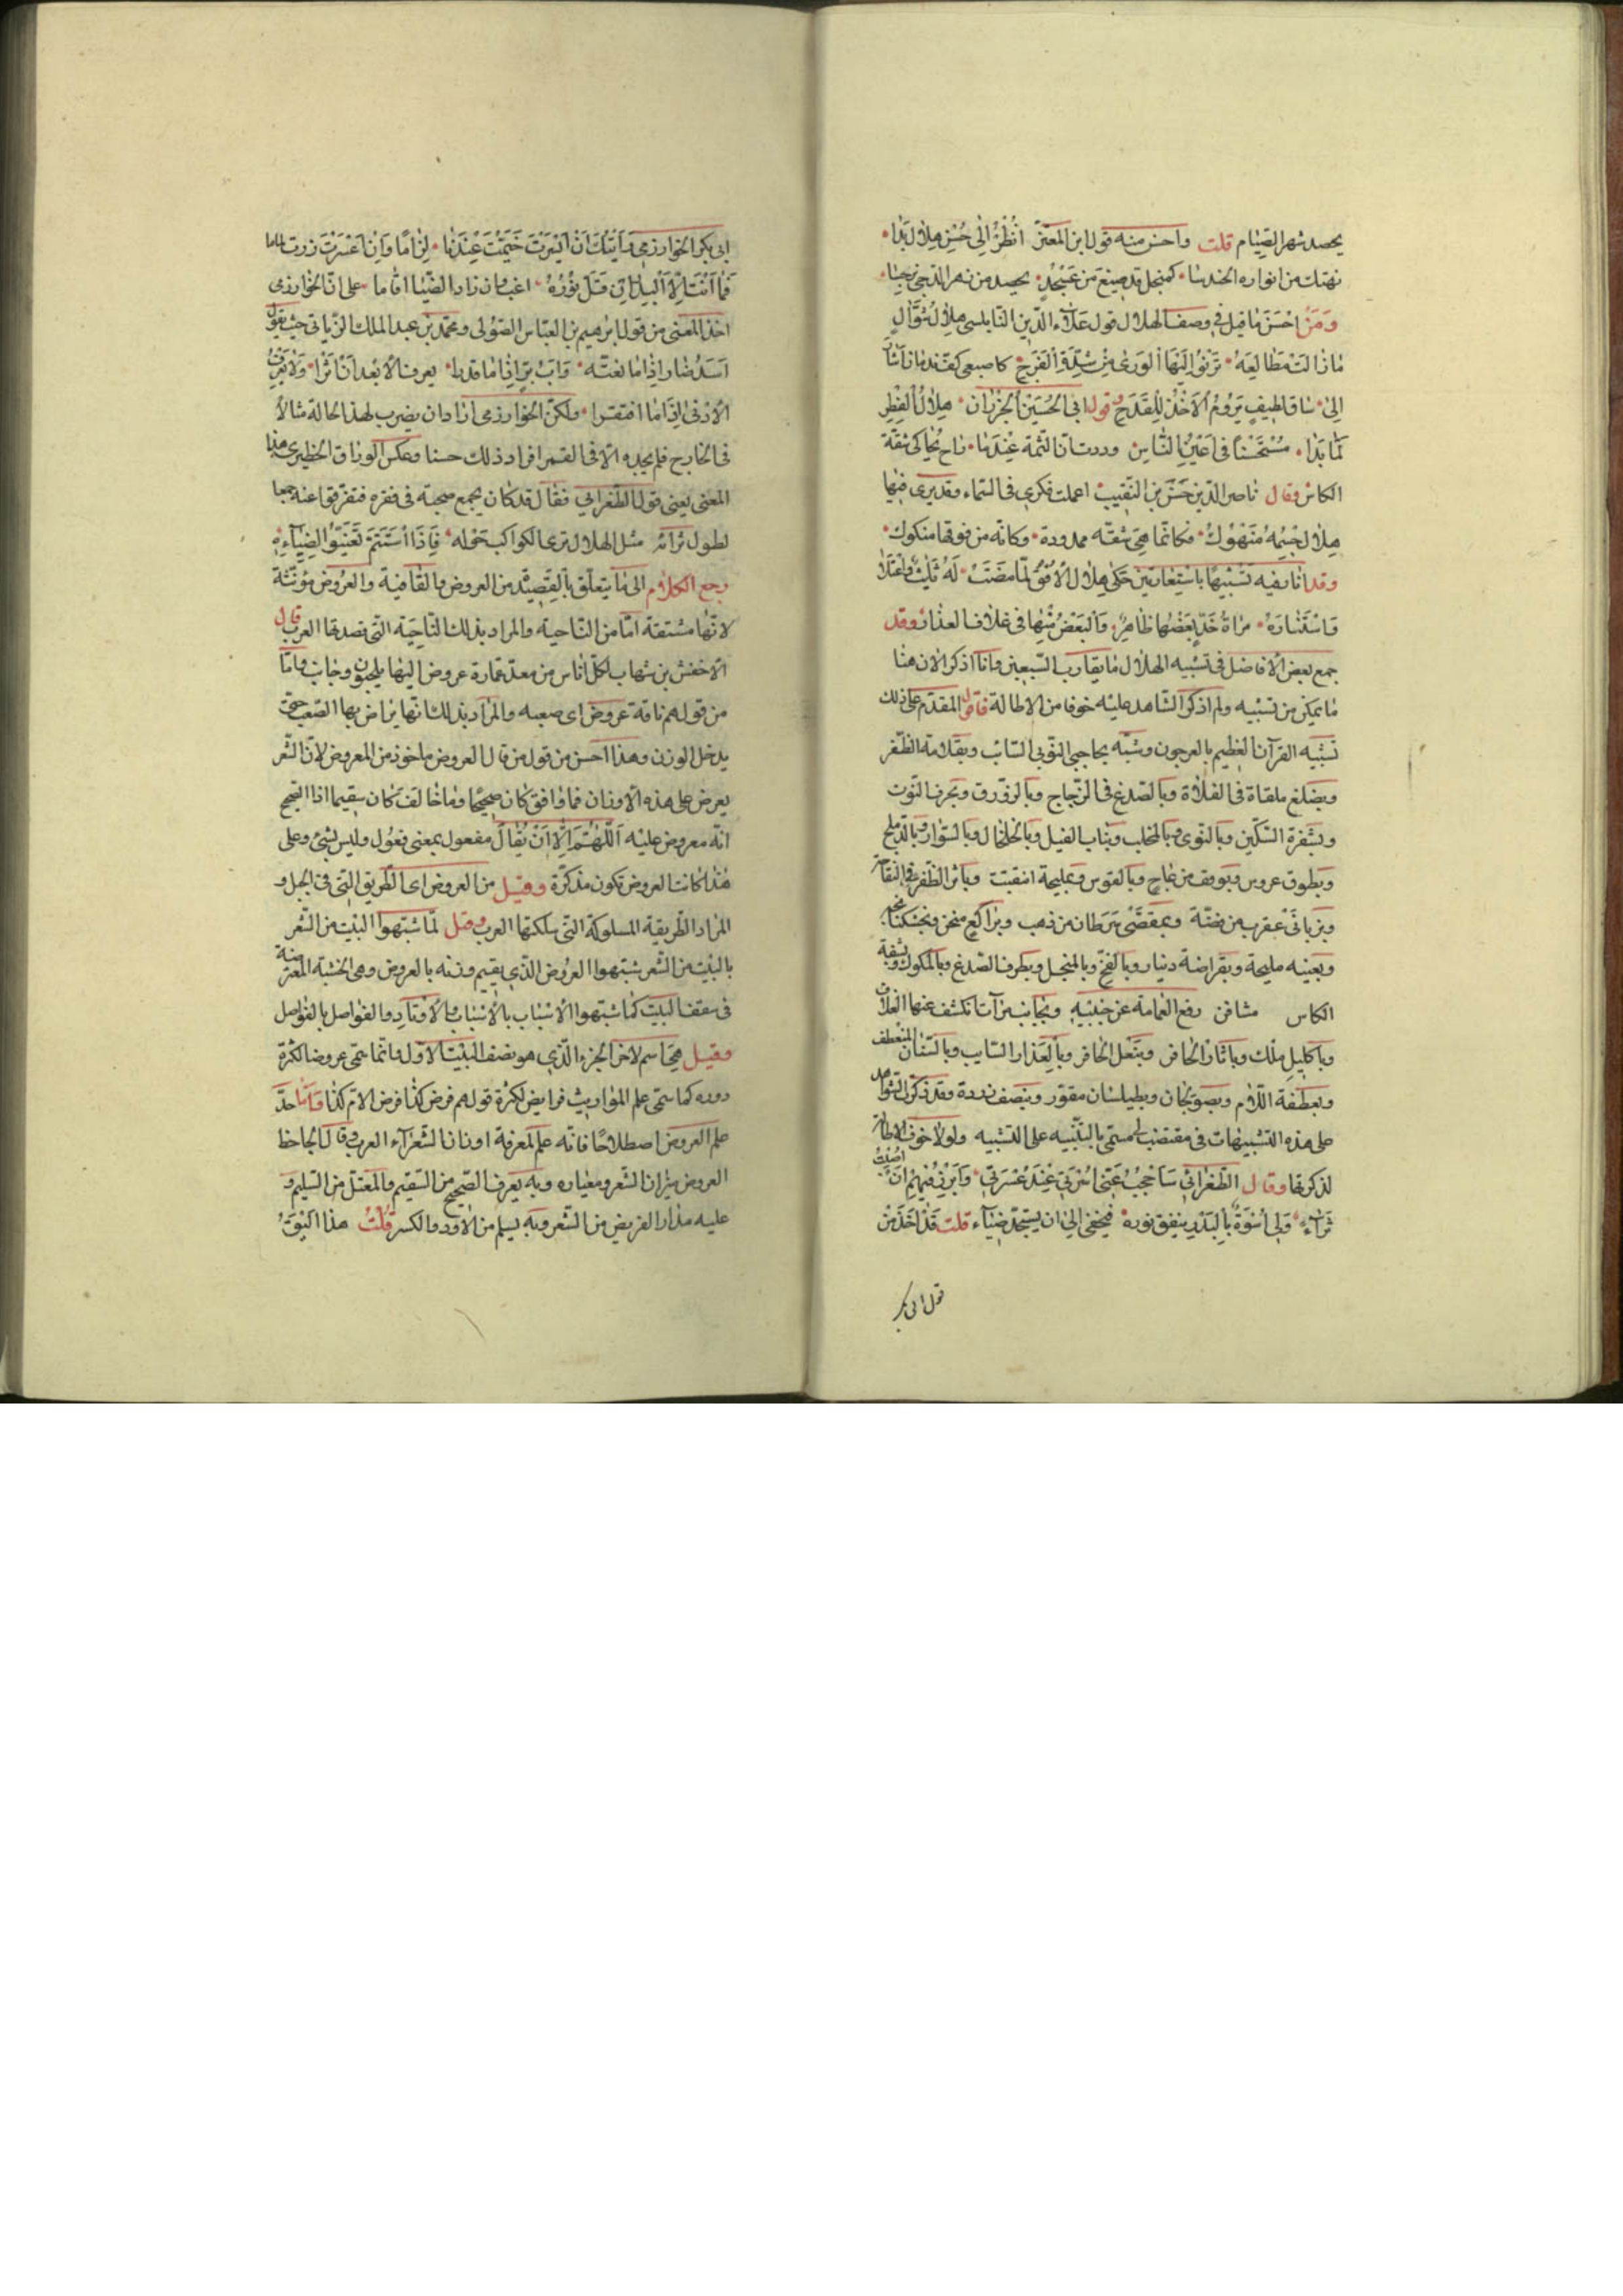 يحصد شهر الصيام قلت واحسن منه قول ابن المعتز انظر الى حسن هلال بدا
يهتك من انواره الحندسا كمنجل قد صيغ من عسجد يحصد من زهر الدجى نرجسا
ومن احسن ما قيل في وصف الهلال قول علاء الدين النابلسي هلال شوال
ما زالت مطالعه ترنو اليها الورى من شدة الفرح كاصبعي كف ندمان اشار
الى ساق لطيف يروم الاخذ للقدح وقول ابي الحسين الجزار ان هلال الفطر
لما بدا مستحسنا في اعين الناس وددت ان التمه عندما راح يحاكي شفة
الكاس وقال ناصر الدين حسن بن النقيب اعملت فكري في السماء وقد يرى فيها
هلال جسمه منهوك فكانما هي شقة ممدودة وكانه من فوقها مكوك
وقد اتانا فيه تشبيها باستعارتين حكى هلال الافق لما مضت له ثلث واعتلا
واستناره مراة خد بعضها ظاهر والبعض منها في غلاف العذار وقد
جمع بعض الافاضل في تشبيه الهلال ما يقارب السبعين وانا اذكر الان هنا
ما يمكن من تشبيه ولم اذكر الشاهد عليه خوفا من الاطالة فاقول المقدم على ذلك
تشبيه القرآن العظيم بالعرجون وشبه بحاجبي النوبي الشائب وبقلامة الظفر
وبضلع ملقاة في الفلاة وبالصدغ في الزجاج وبالزورق وبحرف النون
وبشفرة السكين وبالنوى وبالمخلب وبناب الفيل وبالخلخال وبالسوار وبالدملج
وبطوق عروس وببوق من عاج وبالقوس وبمليحة انتقبت وباثر الظفر في التفاحة
وبزبانى عقرب من فضة وبمقصي سرطان من ذهب وبراكع منحن
وبعينيه مليحة وبقراضة دينار وبالفخ وبالمنجل وبطرف الصدغ وبالمكوك وبشفة
الكاس مشافن رفع العمامة عن جبينه وبجانب مرآت انكشف عنها الغلاف
وباكليل ملك وباثار الحافر وبنعل الحافر وبالعذار السايب وبالسنان المنعطف
وبعطفة اللام وبصولجان وبطيلسان مقور وبنصف زردة وقد ذكرت الشواهد
على هذه التشبيهات في مقتضب لي مستمى بالتنبيه على التشبيه ولولا خوف الاطالة
لذكرتها وقال الطغرائي ساحجب عني اسرتي عند عسرتي وابرز فيهم ان اصبت
ثراء ولي اسوة بالبدر ينفق نوره فيخفى الى ان يستجد ضياء قلت قد اخذ من
قول ابى بكر
ابي بكر الخوارزمي رايتك ان ايسرت خيمت عندنا لزاما وان اعسرت زرت لماما
فما انت الا البدر ان قل نوره اغب وان زاد الضياء اقاما على ان الخوارزمي
اخذ المعنى من قول ابرهيم بن العباس الصولي ومحمد بن عبد الملك الزيات حيث يقول
اسد ضار اذا ما نعته واب بر اذا ما قدرا يعرف الابعد ان اثرا ولا يعرف
الادنى اذا ما افتقرا ولكن الخوارزمي اراد ان يضرب لهذا الحالة مثالا
في الخارج فلم يجده الا في القمر افراد ذلك حسنا وعكس الوراق الحظيري هذا
المعنى يعني قول الطغرائي فقال قد كان يجمع صحبة في فقره فتفرقوا عنه جميعا
لطول ثرائه مثل الهلال ترى الكواكب حوله فاذا استتم تغيبوا لضيائه
رجع الكلام الى ما يتعلق بالقصيد من العروض والقافية والعروض مؤنثة
لانها مشتقة اما من الناحية والمراد بذلك الناحية التي قصدتها العرب قال
الاخفش بن شهاب لكل اناس من معد عمارة عروض اليها يلجون وجانب واما
من قولهم ناقة عروض اى صعبة والمراد بذلك انها يراض بها الصعب حتى
يدخل الوزن وهذا احسن من قول من قال العروض ماخوذ من المعروض لان الشعر
يعرض على هذه الاوزان فما وافق كان صحيحا وما خالف كان سقيما اذا الصحيح
انه معروض عليه اللهم الا ان يقال مفعول بمعنى فعول وليس بشئ وعلى
هذا كانت العروض تكون مذكرة وقيل من العروض اى الطريق التي في الجبل و
المراد الطريقة المسلوكة التي سلكتها العرب وقيل لما شبهوا البيت من الشعر
بالبيت من الشعر شبهوا العروض الذى يقيم وزنه بالعروض وهي الخشبة المعترضة
في سقف البيت كما شبهوا الاسباب بالاسباب والاوتاد والفواصل بالفواصل
وقيل هي اسم لاخر الجزء الذى هو نصف البيت الاول وانما سمى عروضا لكثرة
دوره كما سمى علم المواريث فرايض لكثرة قولهم فرض كذا فرض الام كذا واما حد
علم العروض اصطلاحا فانه علم لمعرفة اوزان الشعراء العرب وقال الجاحظ
العروض ميزان الشعر ومعياره وبه يعرف الصحيح من السقيم والمعتل من السليم و
عليه مدار القريض من الشعر وبه يسلم من الاود والكسر قلت هذا اليق